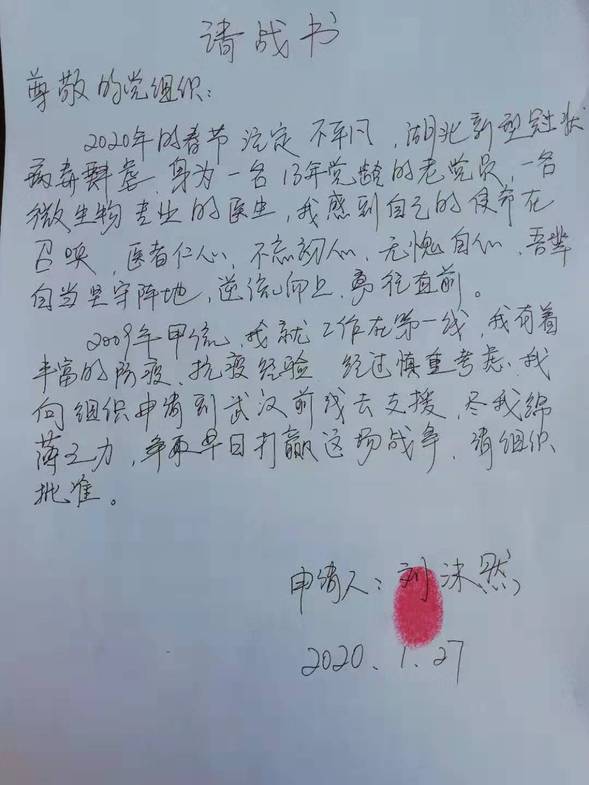 请战书
尊敬的党组织:
2020年的春节注定不平凡,湖北新型冠状
病毒肆虐,身为一名13年党龄的老党员,一名
微生物专业的医生,我感到自己的使命在
召唤,医者仁心,不忘初心,无愧自心,吾辈
自当坚守阵地,逆流而上,勇往直前。
2009年甲流,我就工作在第一线,我有着
丰富的防疫、抗疫经验,经过慎重考虑,我
向组织申请到武汉前线去支援,尽我绵
薄之力,争取早日打赢这场战争,请组织
批准。
申请人:刘沫然
2020.1.27